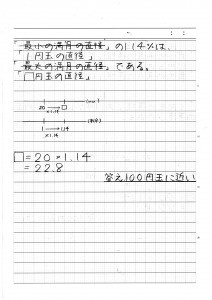 「最小の満月の直径」の1.14%は、
「1円玉の直径」
「最大の満月の直径」である。
「□円玉の直径」
20 → □
×1.14
1 → 1.14
×1.14
□=20×1.14
=22.8
答え100円玉に近い